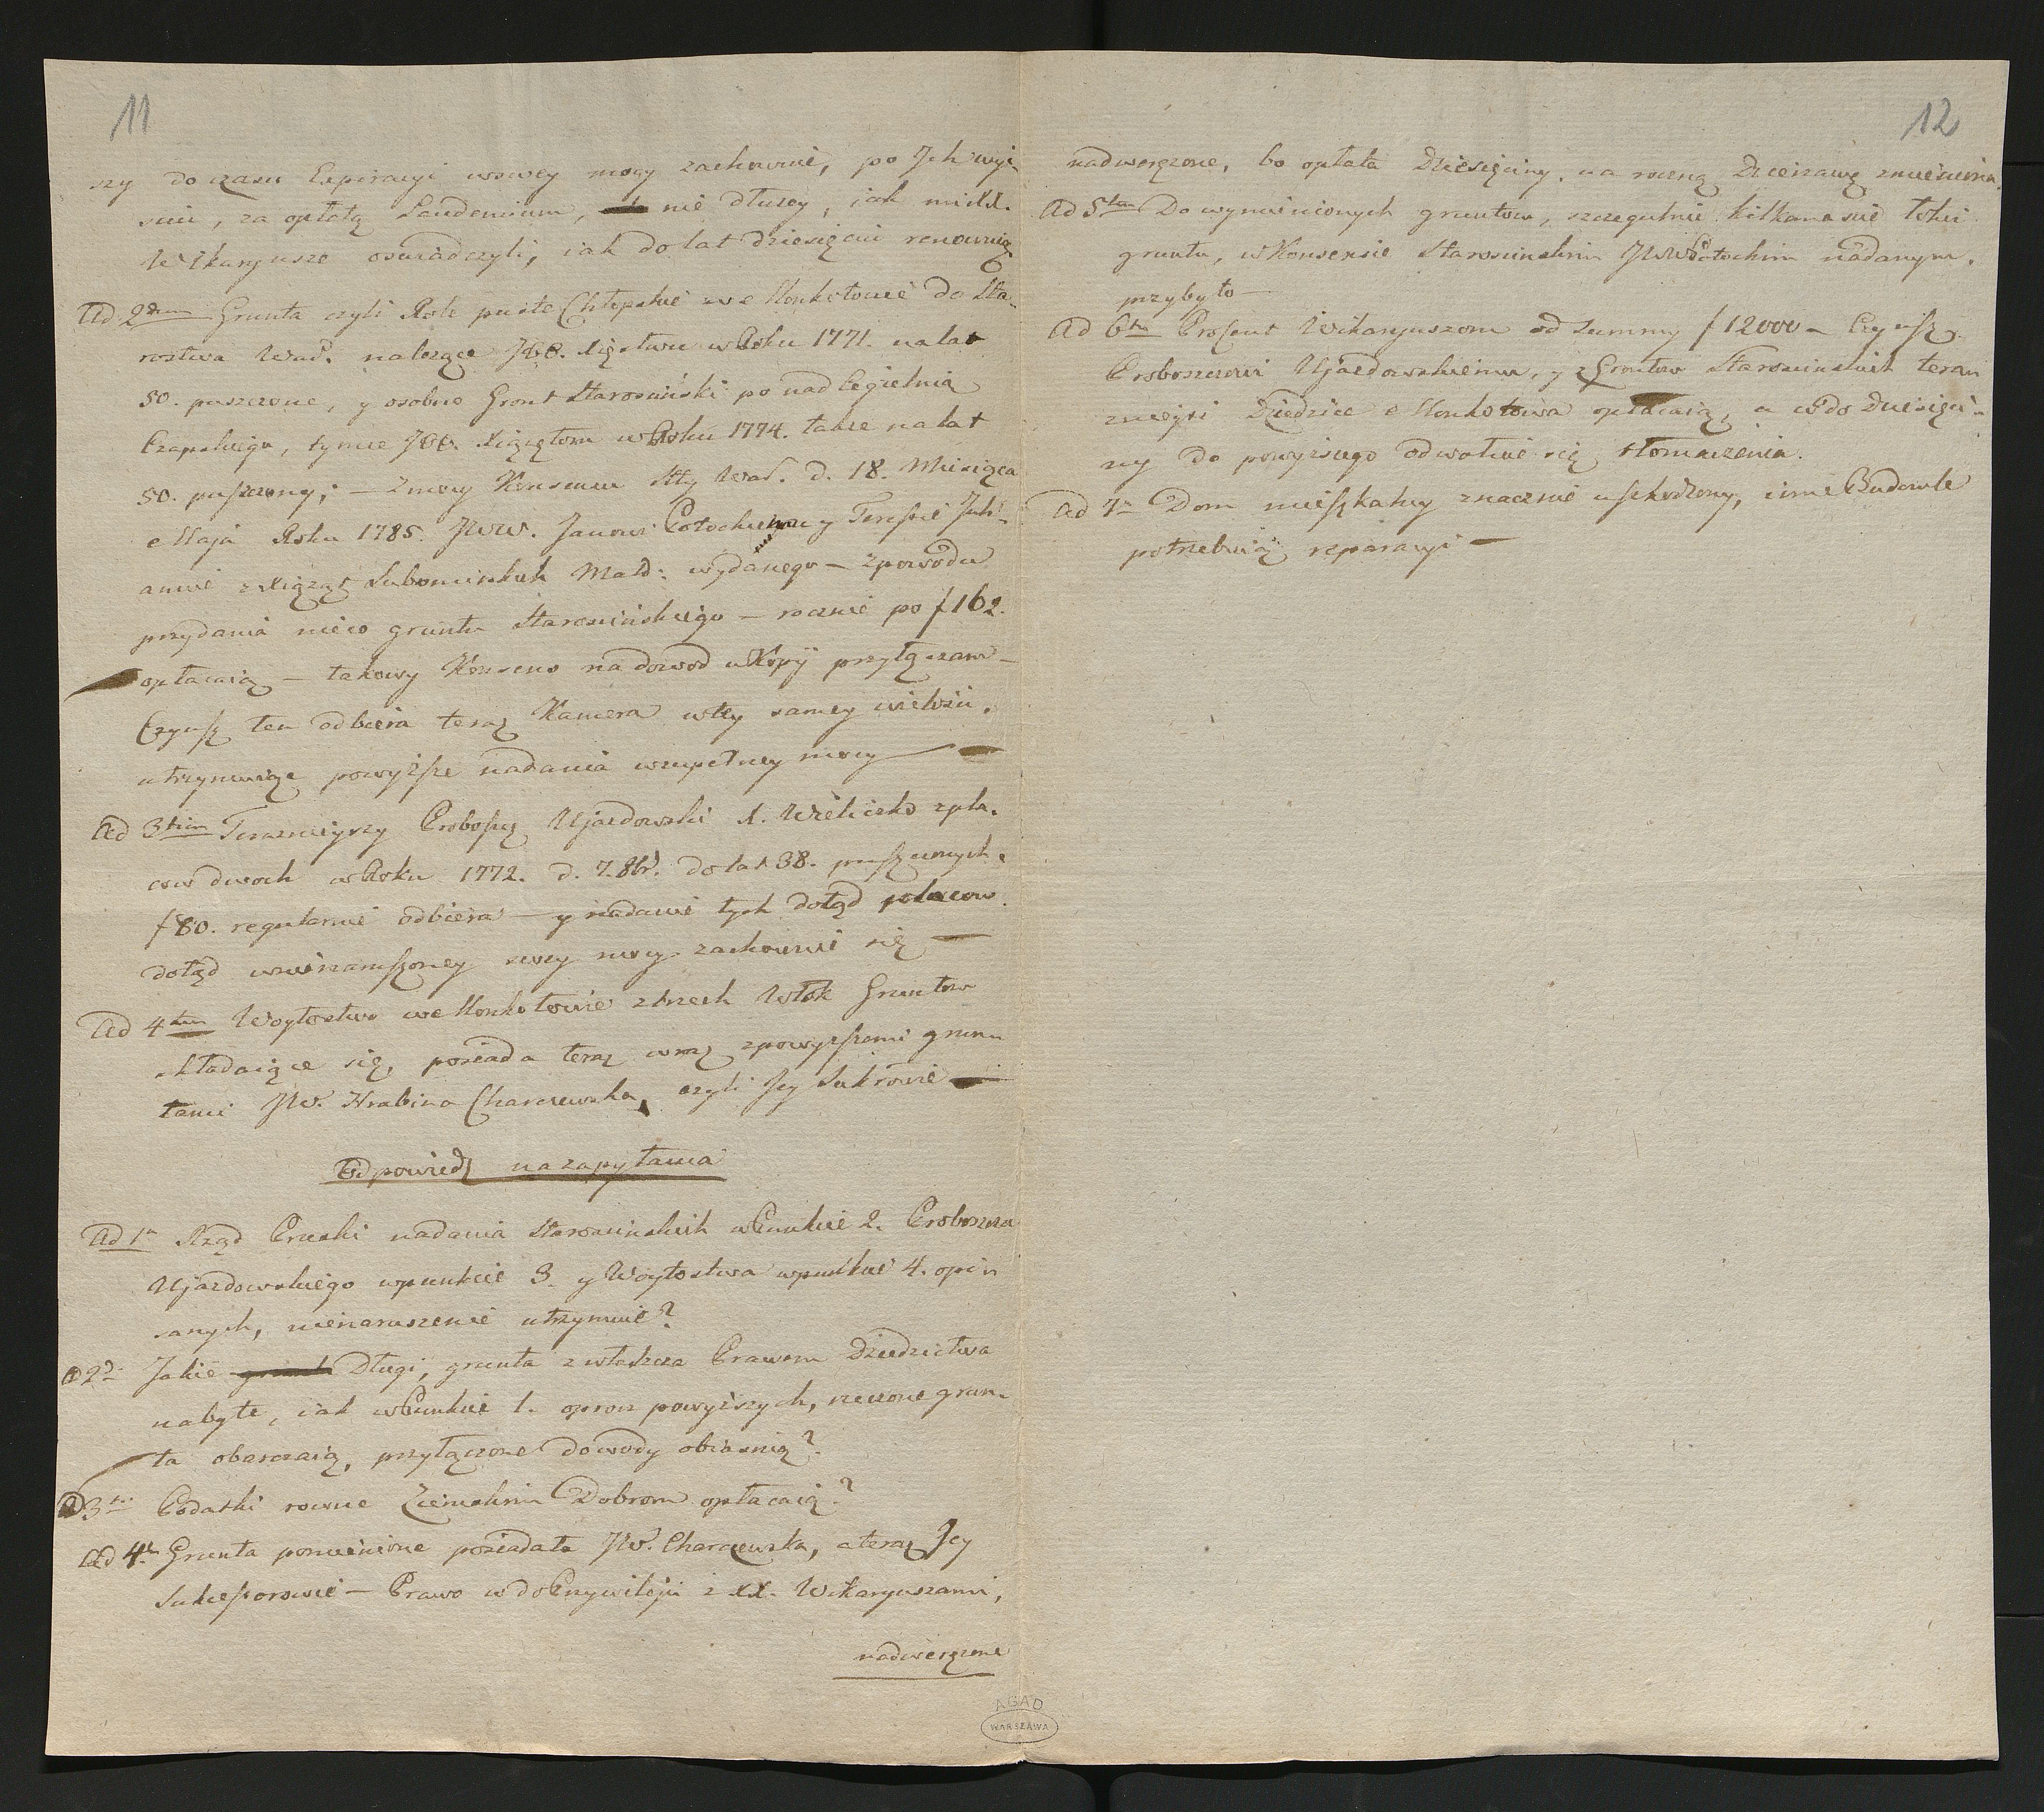 11
szy do czasu Expiracyi wswey mocy zachowuie, po Ich wyi-
sciu, za opłatą Laudemium, nie dłużey, iak
Wikaryusze oswiadczyli, iak do lat dziesięciu renowuią
Ad 2dum Grunta czyli Role puste Chłopskie w Mokotowie do Sta-
rostwa War. należące JOO. Xięstwu w Roku 1771. na lat
50. puszczone, y osobno Gront Starosciński ponad Cegielnią
Czapskiego, tymże JOO. Xiążętom w Roku 1774. także na lat
50. puszczony; — Z mocy Konsensu Stty War. d. 18. Miesiąca
Maja Roku 1785. JWW. Janowi Potockiemu y Teressie Juli-
annie z Xiążąt Lubomirskich Małż: wydanego — z powodu
przydania nieco gruntu Starościńskiego — rocznie po f 162.
opłacaią — takowy Konsens na dowod w Kopij przyłączam —
Czynsz ten odbiera teraz Kamera w tey samey
utrzymuiąc powyższe nadania w zupełney mocy —
Ad 3tium Teraznieyszy Proboszcz Ujazdowski X. Wieliczko z pla-
cow dwoch w Roku 1772. d. 7. 8br. do lat 38. puszczonych
f 80. regularnie odbiera — y nadanie tych dotąd placow
dotąd w niewzruszoney swey mocy zachowuie się —
Ad 4tum Woytostwo w Mokotowie z trzech Włok Gruntow
składaiące się, posiada teraz wraz z powyższemi grun-
tami JW. Hrabina Charczewska, czyli Jey Sukcessorowie —
Odpowiedz na zapytania
Ad 1m Rząd Pruski nadania Staroscinskich w Punkcie 2. Proboszcza
Ujazdowskiego w punkcie 3. y Woytostwa w punkcie 4. opi-
sanych, nienaruszenie utrzymuie?
2do Jakie Długi, grunta zwłaszcza Prawem Dziedzictwa
nabyte, iak w Punkcie 1. oprocz powyższych, rzeczone grun-
ta obarczaią, przyłączone dowody obiasnią?
3tio Podatki rowne Ziemskim Dobrom opłacaią?
Ad 4m Grunta pomienione posiadała JW. Charczewska, a teraz Jey
Sukcessorowie — Prawo w do Przywileju z XX. Wikaryuszami,
nadwerężone
12
nadwerężone, bo opłata Dziesięciny, na roczną Dzierżawę zmieniona.
Ad 5tum Do wymienionych gruntow, szczegulnie kilkanascie łokci
gruntu, w Konsensie Staroscinskim JWW Potockim nadanym,
przybyło —
Ad 6tm Procent Wikaryuszom od Summy f 12000 — Czynsz
Proboszczowi Ujazdowskiemu, y z Grontow Staroscinskich teraz
znieysi Dziedzice Mokotowa opłacaią, a w do Dziesięci-
ny do powyższego odwołuie się tłomaczenia.
Ad 7m Dom mieszkalny znacznie uszkodzony, inne Budowle
potrzebuią reparacyi —
AGAD
WARSZAWA